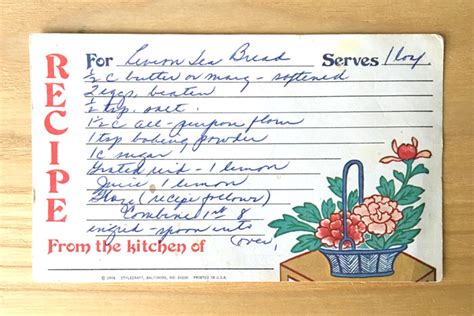 RECIPE
For Lemon Tea Bread Serves 1 loaf
½ c butter or marg - softened
2 eggs, beaten
½ tsp. salt
1½ c all-purpose flour
1 tsp baking powder
1 c sugar
Grated rind - 1 lemon
Juice 1 lemon
Glaze (recipe follows)
Combine 1st 8
ingrid - spoon into
From the kitchen of (over)
STYLECRAFT, BALTIMORE, MD PRINTED IN U.S.A.